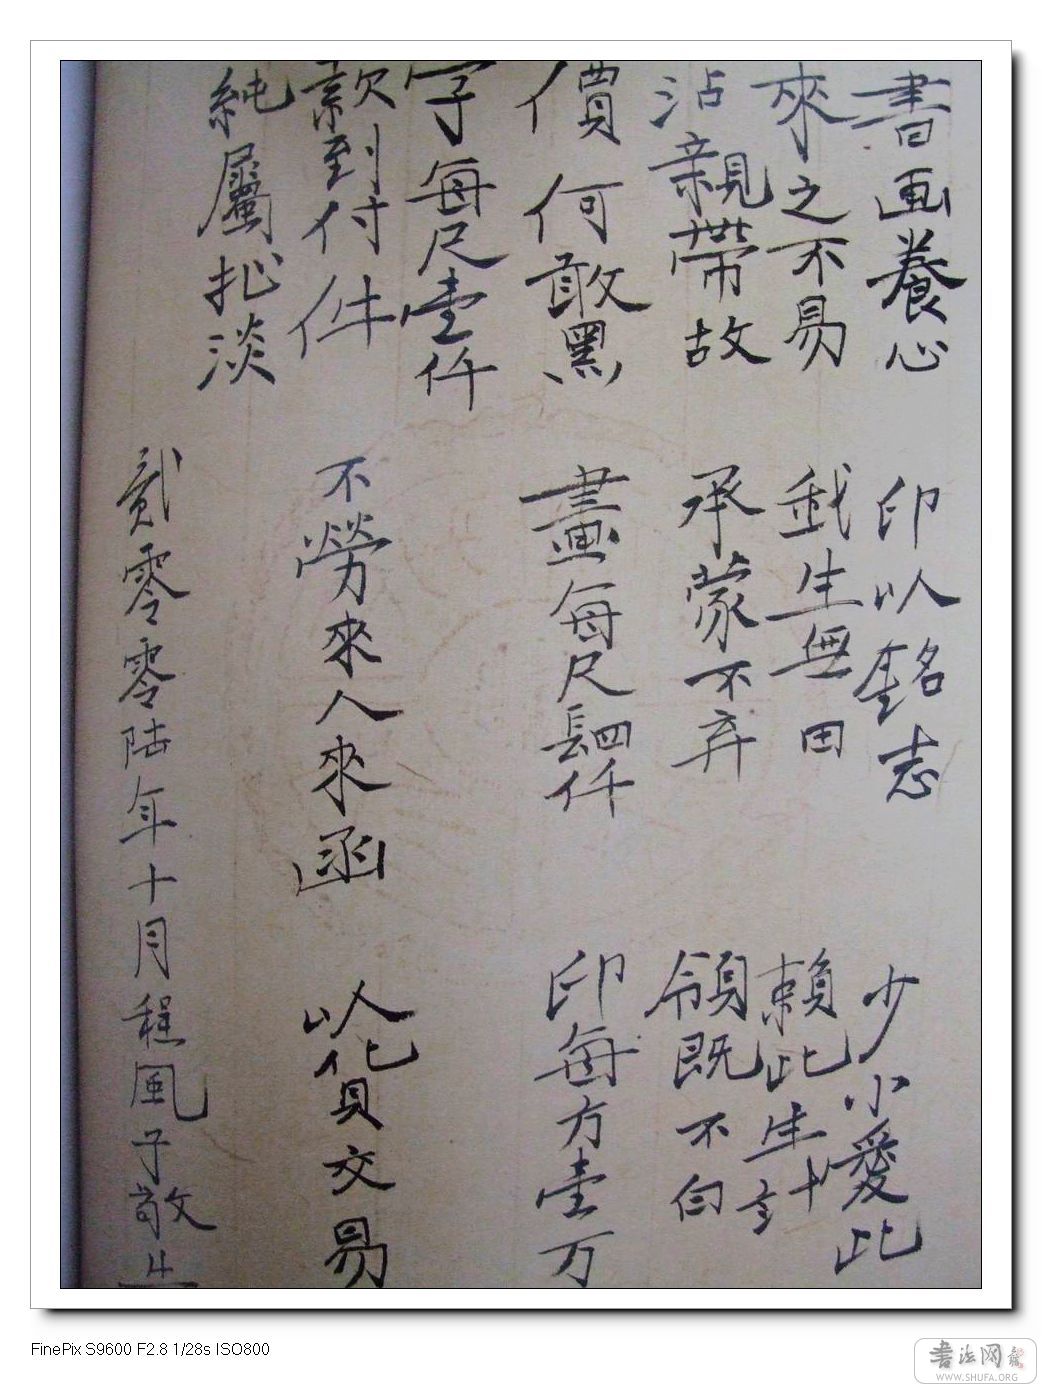 書画養心 印以銘志 少小愛此
來之不易 我生無田 賴此生計
沾親帶故 承蒙不弃 領既不白
價何敢黑 畫每尺肆仟 印每方壹万
字每尺壹仟
款到付件 不勞來人來函 以貨交易
純屬扯淡
貳零零陸年十月程風子敬上
FinePix S9600 F2.8 1/28s ISO800
書法网
WWW.SHUFA.ORG